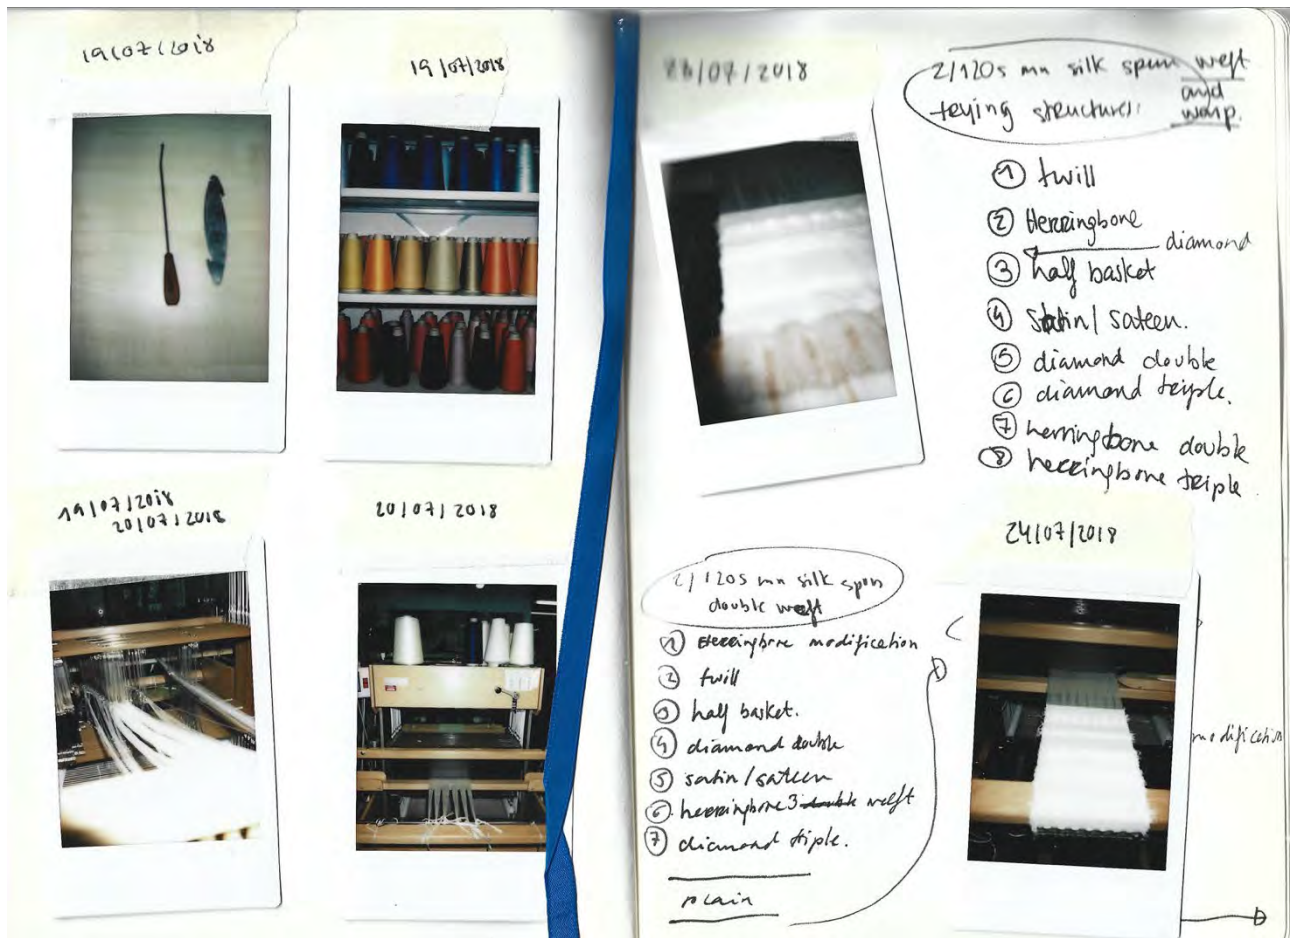 19/07/2018
19/07/2018
19/07/2018
20/07/2018
20/07/2018
/07/2018
2/120s silk spun weft
and
trying structures: warp.
① twill
② Herringbone
diamond
③ half basket
④ satin/sateen.
⑤ diamond double
⑥ diamond triple.
⑦ herringbone double
⑧ herringbone triple.
24/07/2018
2/120s silk spun
double weft
① Herringbone modification
② twill
③ half basket.
④ diamond double
⑤ satin/sateen
⑥ herringbone 3 double weft
⑦ diamond triple.
plain
modification